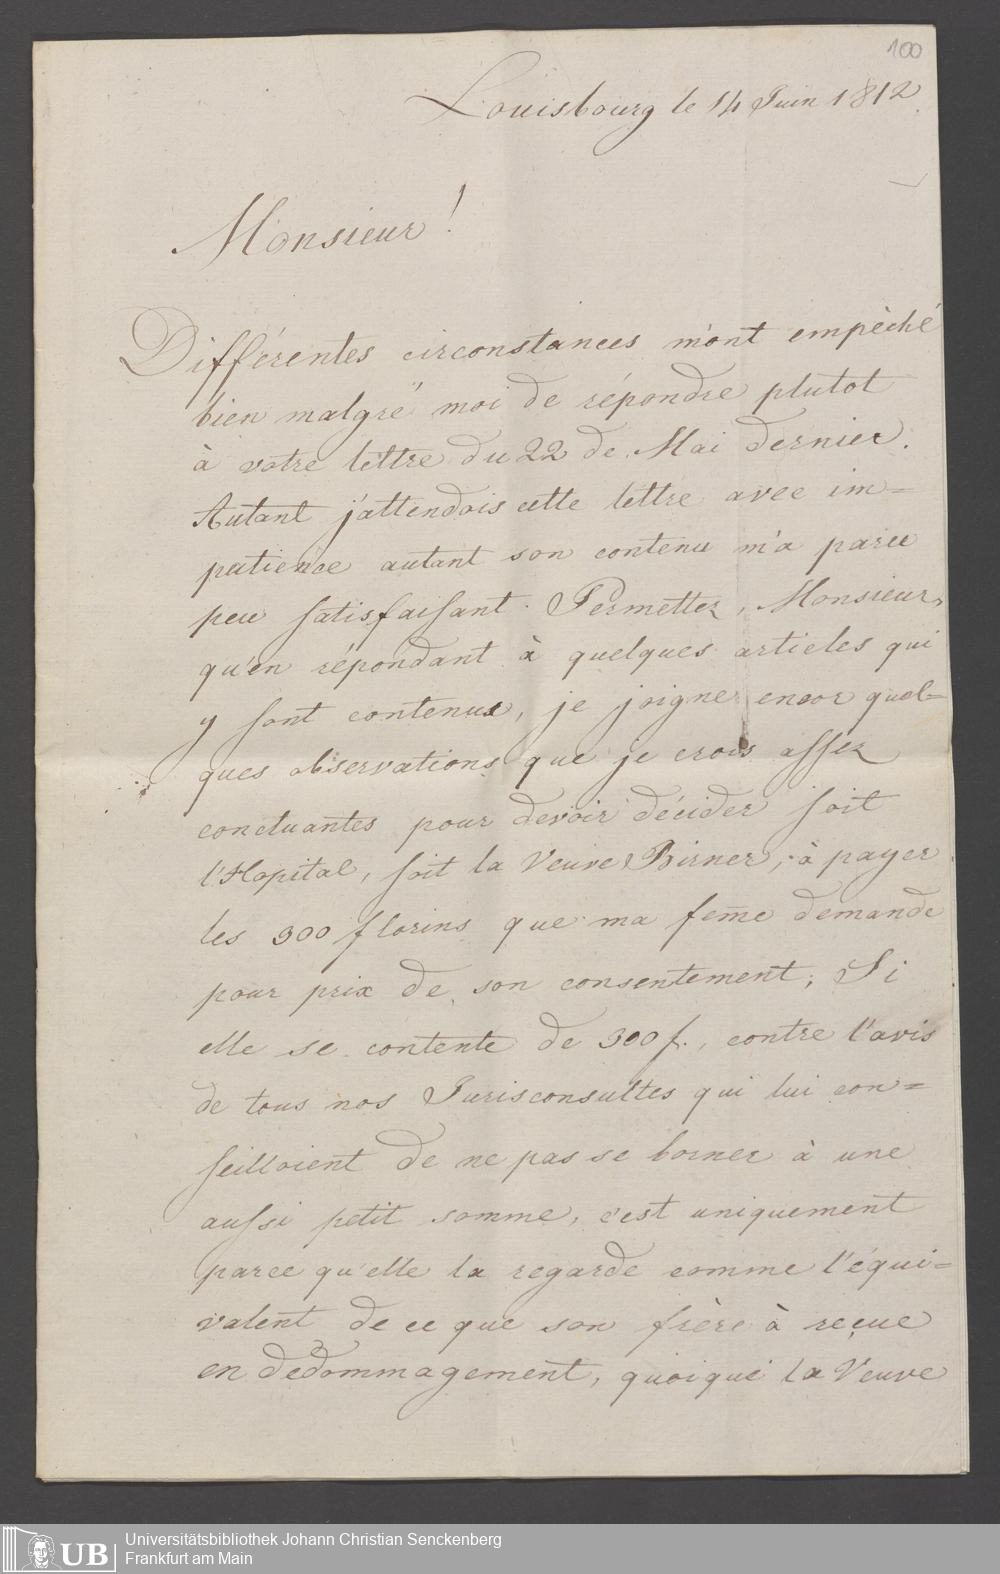 100
Louisbourg le 14 Juin 1812
Monsieur!
Différentes circonstances m'ont empêché
bien malgré moi de répondre plutot
à votre lettre du 22 de Mai dernier.
Autant j'attendois cette lettre avec im=
patience autant son contenu m'a paru
peu satisfaisant. Permettez, Monsieur,
qu'en répondant à quelques articles qui
y sont contenus, je joigne encor quel=
ques observations que je crois assez
concluantes pour devoir décider soit
l'Hopital, soit la Veuve Birner, à payer
les 300 florins que ma fem̄e demande
pour prix de son consentement; Si
elle se contente de 300 f., contre l'avis
de tous nos Jurisconsultes qui lui con=
seilloient de ne pas se borner à une
aussi petit somme, c'est uniquement
parce qu'elle la regarde comme l'équi=
valent de ce que son frère à reçue
en dedommagement, quoique la Veuve
UB
Universitätsbibliothek Johann Christian Senckenberg
Frankfurt am Main